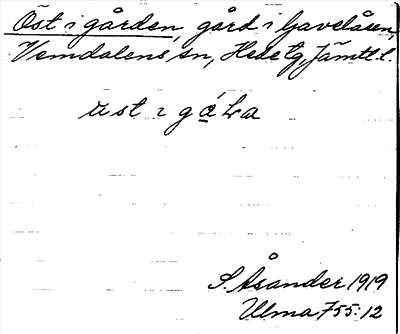 Öst i gården, gård i Gavelåsen,
Vemdalens sn, Hede tg, Jämtl. l.
S. Åsander 1919
Ulma 755:12